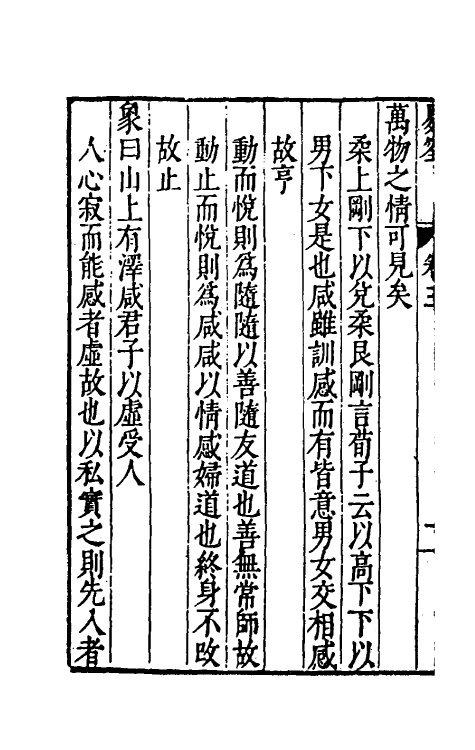 萬物之情可見矣
柔上剛下以兌柔艮剛言荀子云以高下下以
男下女是也咸雖訓感而有皆意男女交相感
故亨
動而悅則爲隨隨以善隨友道也善無常師故
動止而悅則爲咸咸以情感婦道也終身不改
故止
象曰山上有澤咸君子以虛受人
人心寂而能感者虛故也以私實之則先入者